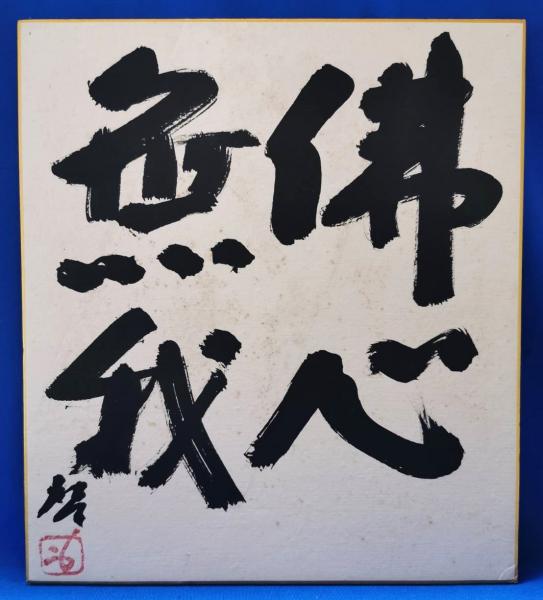 佛心
無我